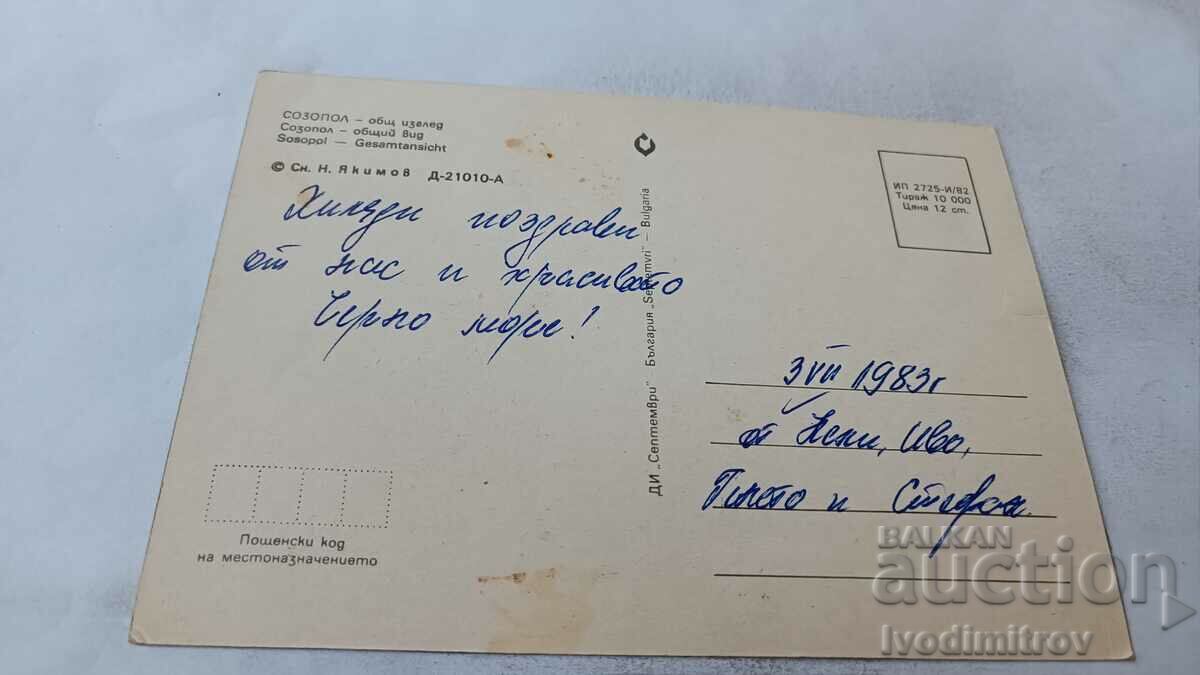 СОЗОПОЛ – общ изглед
Созопол – общий вид
Sosopol — Gesamtansicht
© Сн. Н. Якимов Д-21010-А
Хиляди поздрави
от нас и красивото
Черно море!
Пощенски код
на местоназначението
ДИ „Септември" – България "Septemvri" – Bulgaria
ИП 2725-И/82
Тираж 10 000
Цена 12 ст.
3 VII 1983 г
от Иво,
и Стефан.
BALKAN
auction
Ivodimitrov